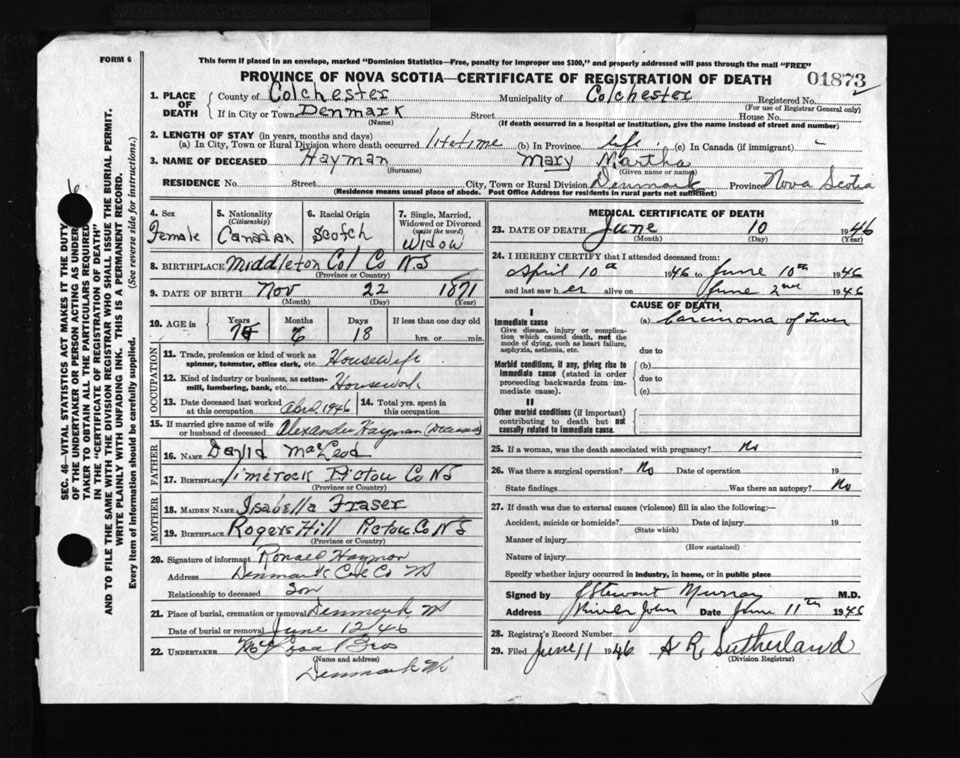 FORM 6
This form if placed in an envelope, marked "Dominion Statistics—Free, penalty for improper use $300," and properly addressed will pass through the mail "FREE"
PROVINCE OF NOVA SCOTIA—CERTIFICATE OF REGISTRATION OF DEATH 01873
1. PLACE OF DEATH County of Colchester Municipality of Colchester Registered No.
(For use of Registrar General only)
If in City or Town Denmark Street House No.
(Name) (If death occurred in a hospital or institution, give the name instead of street and number)
2. LENGTH OF STAY (in years, months and days)
(a) In City, Town or Rural Division where death occurred lifetime (b) In Province life (c) In Canada (if immigrant) -
3. NAME OF DECEASED Hayman Mary Martha
(Surname) (Given name or names)
RESIDENCE No. Street City, Town or Rural Division Denmark Province Nova Scotia
(Residence means usual place of abode. Post Office Address for residents in rural parts not sufficient)
SEC. 46—VITAL STATISTICS ACT MAKES IT THE DUTY
OF THE UNDERTAKER OR PERSON ACTING AS UNDERTAKER TO OBTAIN ALL THE PARTICULARS REQUIRED
IN THE "CERTIFICATE OF REGISTRATION OF DEATH"
AND TO FILE THE SAME WITH THE DIVISION REGISTRAR WHO SHALL ISSUE THE BURIAL PERMIT.
WRITE PLAINLY WITH UNFADING INK. THIS IS A PERMANENT RECORD.
Every item of information should be carefully supplied. (See reverse side for instructions.)
4. Sex Female
5. Nationality (Citizenship) Canadian
6. Racial Origin Scotch
7. Single, Married, Widowed or Divorced (write the word) Widow
8. BIRTHPLACE Middleton Col Co NS
(Province or Country)
9. DATE OF BIRTH Nov 22 1871
(Month) (Day) (Year)
10. AGE in Years Months Days If less than one day old
74 6 18 hrs. or min.
OCCUPATION
11. Trade, profession or kind of work as spinner, teamster, office clerk, etc. Housewife
12. Kind of industry or business, as cotton-mill, lumbering, bank, etc. Housework
13. Date deceased last worked at this occupation April 1946
14. Total yrs. spent in this occupation
15. If married give name of wife or husband of deceased Alexander Hayman
FATHER
16. NAME David MacLeod
17. BIRTHPLACE Limerock Pictou Co NS
(Province or Country)
MOTHER
18. MAIDEN NAME Isabella Fraser
19. BIRTHPLACE Rogers Hill Pictou Co NS
(Province or Country)
20. Signature of informant Ronald Hayman
Address Denmark Col Co NS
Relationship to deceased Son
21. Place of burial, cremation or removal Denmark NS
Date of burial or removal June 12/46
22. UNDERTAKER Bros
(Name and address)
Denmark NS
MEDICAL CERTIFICATE OF DEATH
23. DATE OF DEATH June 10 1946
(Month) (Day) (Year)
24. I HEREBY CERTIFY that I attended deceased from:
April 10th 1946 to June 10th 1946
and last saw her alive on June 2nd 1946
CAUSE OF DEATH
I
Immediate cause (a) Carcinoma of Liver
Give disease, injury or complication which caused death, not the mode of dying, such as heart failure, asphyxia, asthenia, etc.
due to
Morbid conditions, if any, giving rise to immediate cause (stated in order proceeding backwards from immediate cause).
(b)
due to
(c)
II
Other morbid conditions (if important) contributing to death but not causally related to immediate cause.
25. If a woman, was the death associated with pregnancy? No
26. Was there a surgical operation? No Date of operation 19
State findings Was there an autopsy? No
27. If death was due to external causes (violence) fill in also the following:—
Accident, suicide or homicide? Date of injury 19
(State which)
Manner of injury
(How sustained)
Nature of injury
Specify whether injury occurred in industry, in home, or in public place
Signed by J Stewart Murray M.D.
Address River John Date June 11th 1946
28. Registrar's Record Number
29. Filed June 11 1946 A R Sutherland
(Division Registrar)